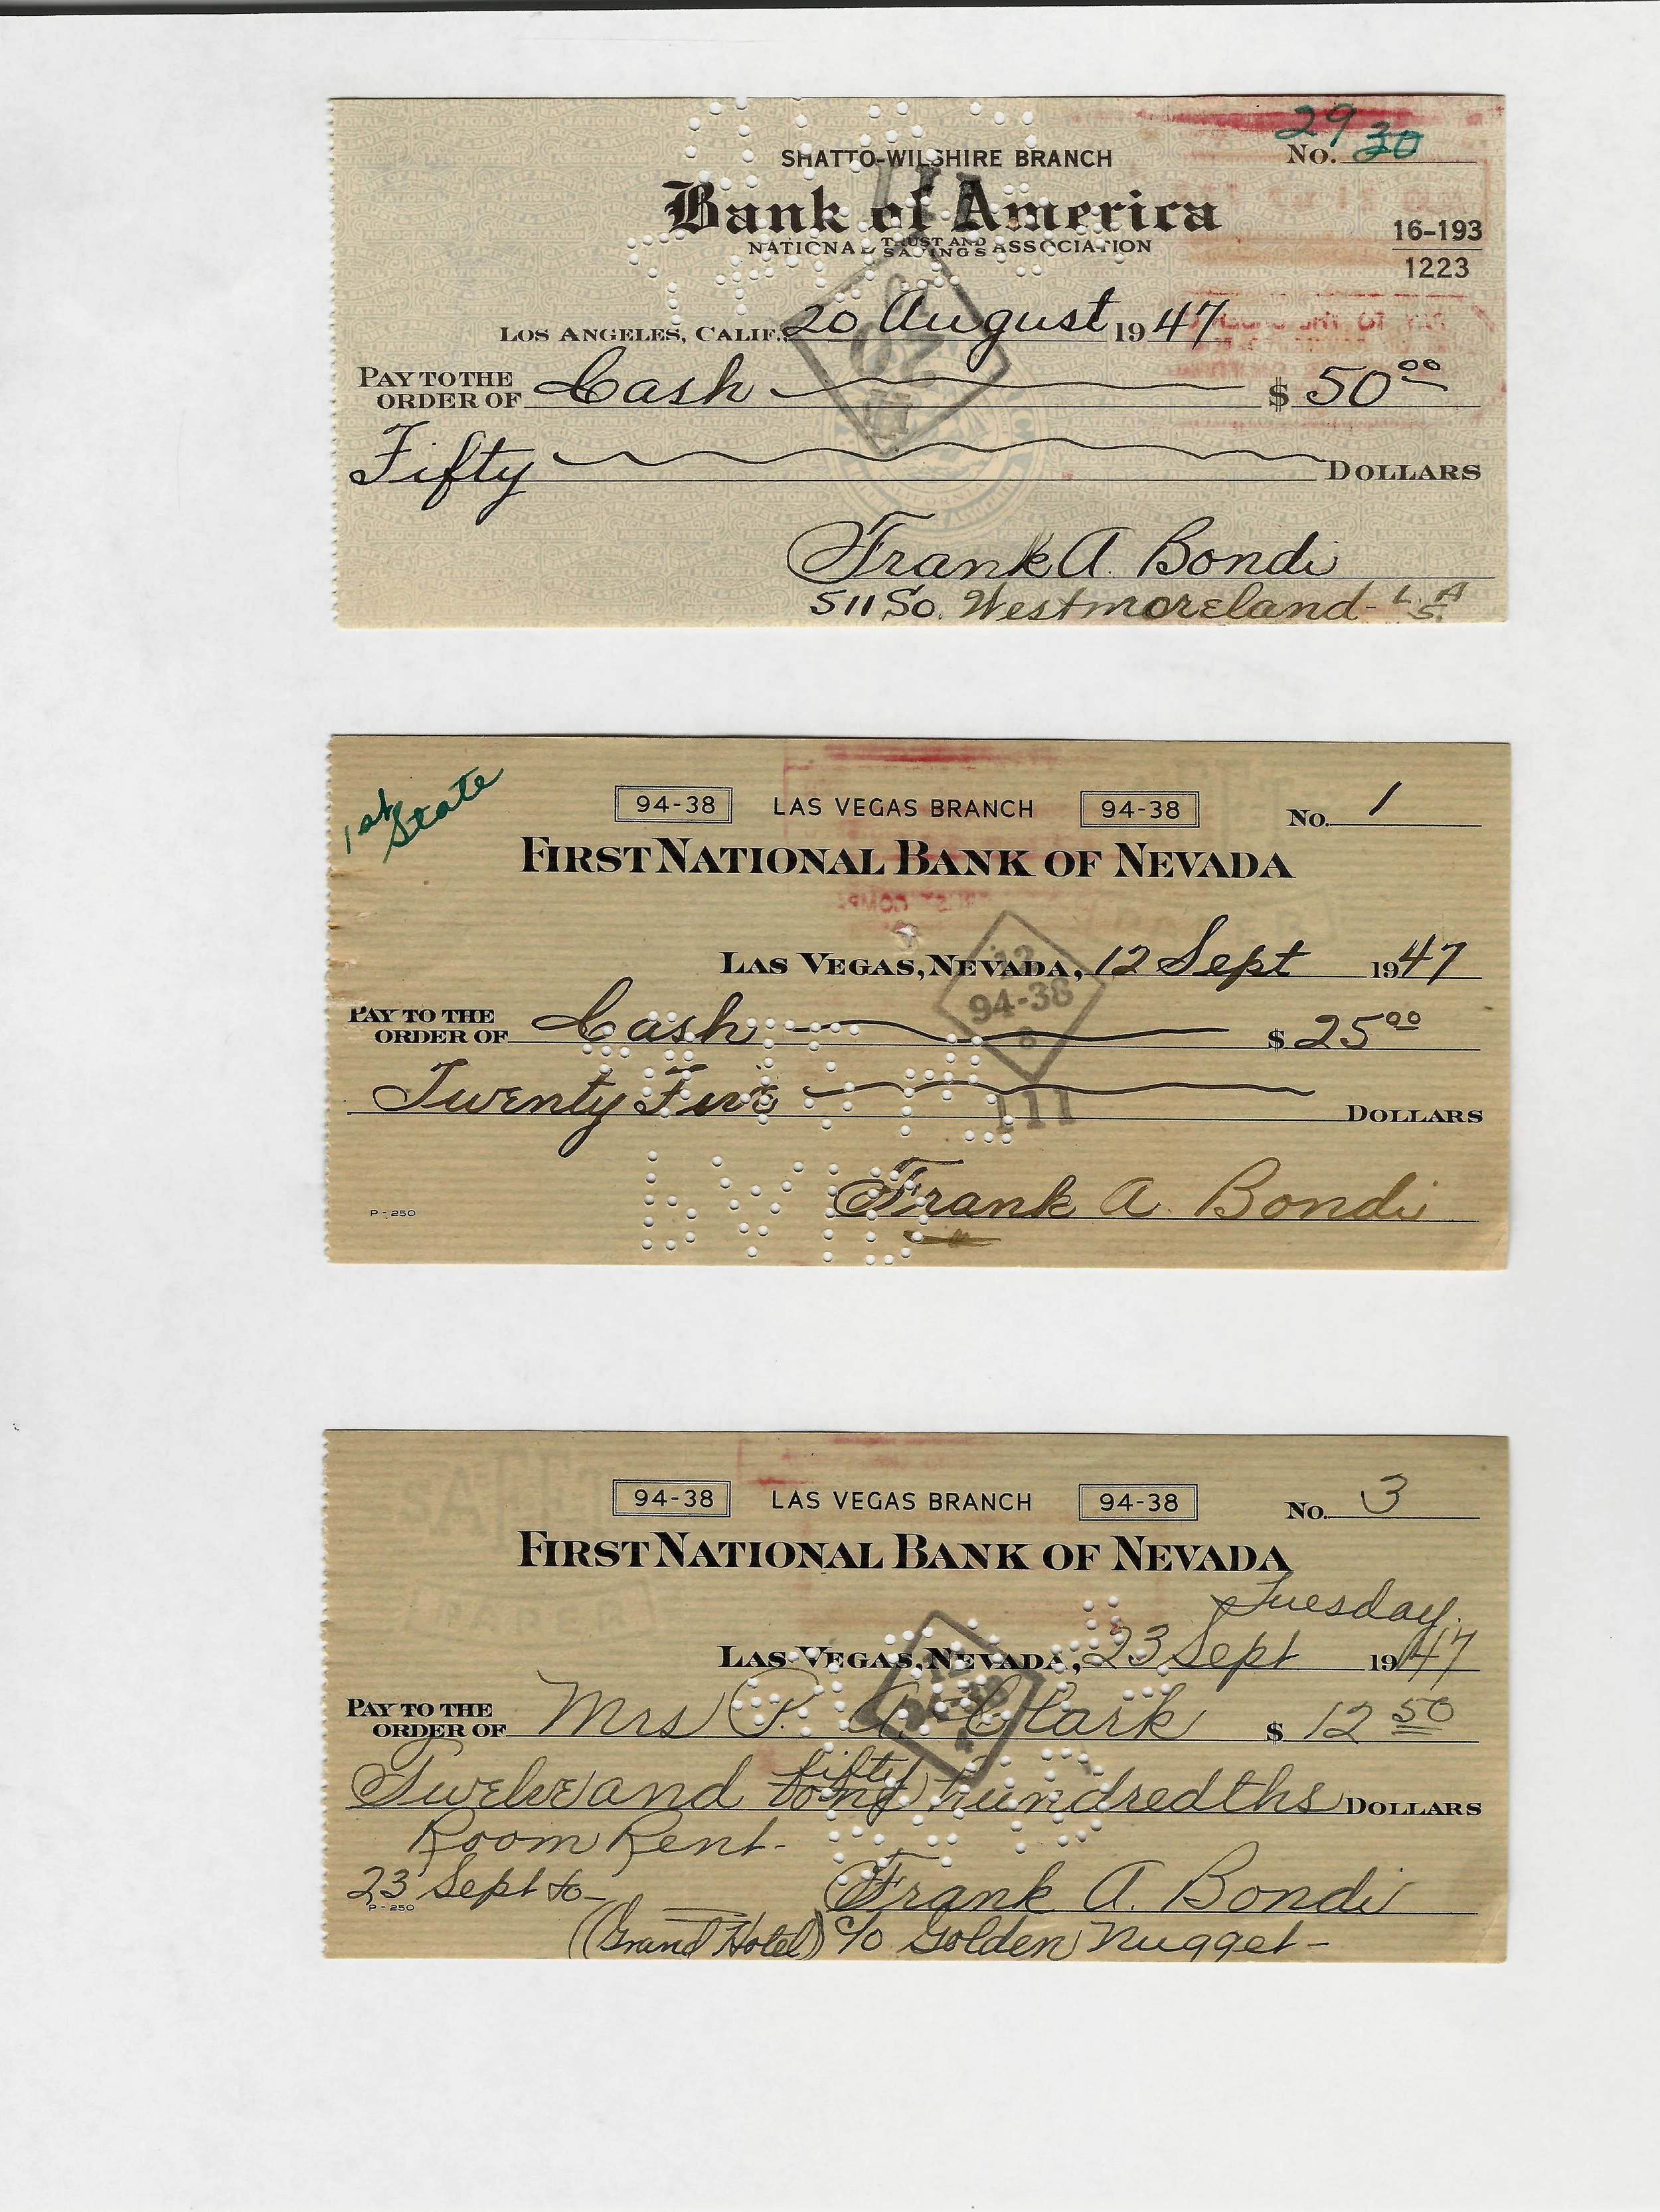 29
No. 30
SHATTO-WILSHIRE BRANCH
Bank of America
NATIONAL TRUST AND SAVINGS ASSOCIATION
16-193
1223
LOS ANGELES, CALIF., 20 August 1947
PAY TO THE ORDER OF Cash $ 50 00
Fifty DOLLARS
Frank A. Bondi
511 So. Westmoreland - L.A. 5.
1st State
94-38 LAS VEGAS BRANCH 94-38 No. 1
FIRST NATIONAL BANK OF NEVADA
LAS VEGAS, NEVADA, 12 Sept 1947
94-38
PAY TO THE ORDER OF Cash $ 25 00
Twenty Five DOLLARS
111
Frank A. Bondi
P-250
94-38 LAS VEGAS BRANCH 94-38 No. 3
FIRST NATIONAL BANK OF NEVADA
Tuesday.
LAS VEGAS, NEVADA, 23 Sept 1947
PAY TO THE ORDER OF Mrs P. A. Clark $ 12 50
Twelve and fifty hundredths DOLLARS
Room Rent-
23 Sept to- Frank A. Bondi
P-250
(Grand Hotel) c/o Golden Nugget-